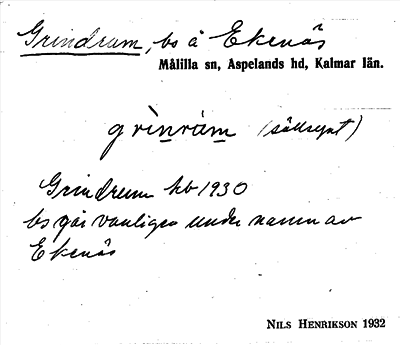 Grindrum, bs å Ekenäs
Målilla sn, Aspelands hd, Kalmar län.
grinram (sällsynt)
Grindrum hb 1930
bs går vanligen under namn av
Ekenäs
NILS HENRIKSON 1932